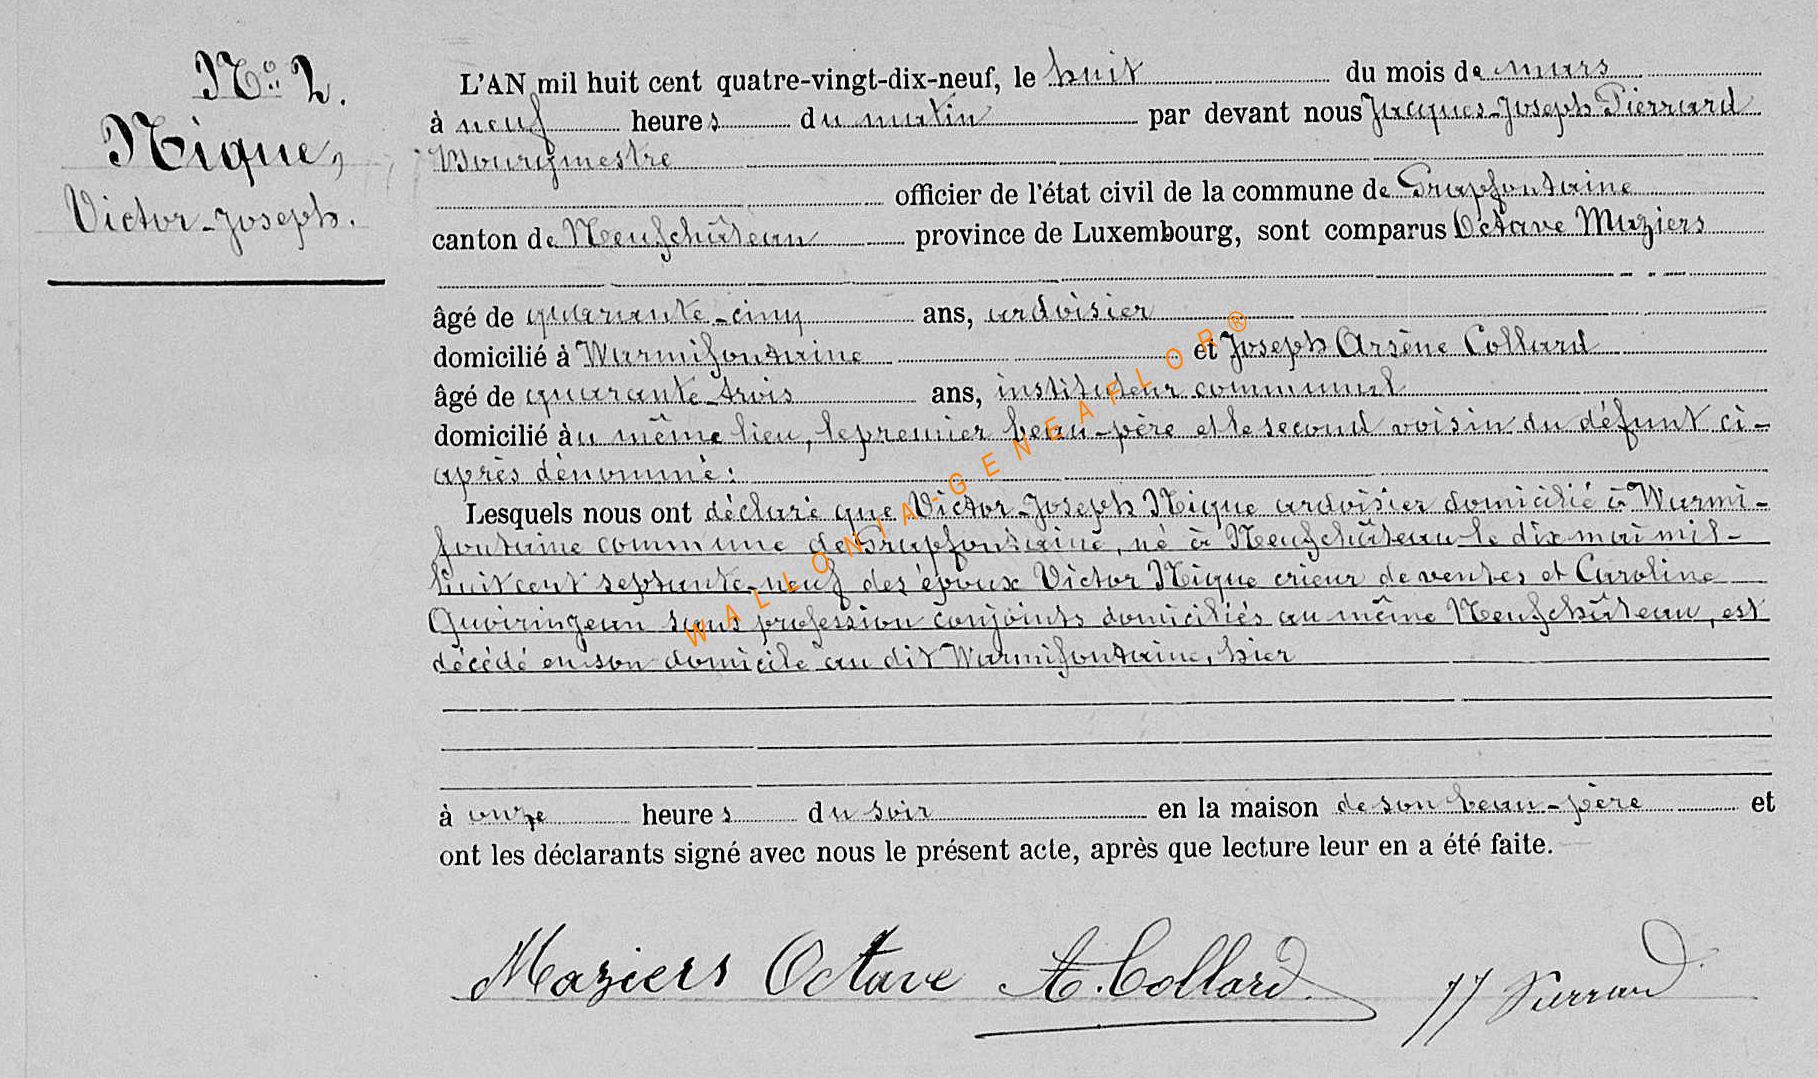 N° 2.
Nique,
Victor-Joseph.
L'AN mil huit cent quatre-vingt-dix-neuf, le huit du mois de mars
à neuf heures du matin par devant nous Jacques-Joseph Pierrard
Bourgmestre
officier de l'état civil de la commune de Grapfontaine
canton de Neufchâteau province de Luxembourg, sont comparus Octave Maziers
âgé de quarante-cinq ans, ardoisier
domicilié à Warmifontaine et Joseph Arsène Collard
âgé de quarante-trois ans, instituteur communal
domicilié au même lieu, le premier beau-père et le second voisin du défunt ci-
après dénommé:
Lesquels nous ont déclaré que Victor-Joseph Nique ardoisier domicilié à Warmi-
fontaine commune de Grapfontaine, né à Neufchâteau le dix mai mil-
huit cent septante-neuf des époux Victor Nique crieur de ventes et Caroline
Quoiringeau sans profession conjoints domiciliés au même Neufchâteau, est
décédé en son domicile au dit Warmifontaine, hier
à onze heures du soir en la maison de son beau-père et
ont les déclarants signé avec nous le présent acte, après que lecture leur en a été faite.
Maziers Octave A. Collard JJ Pierrard
WALLONIA-GENEAFLOR®